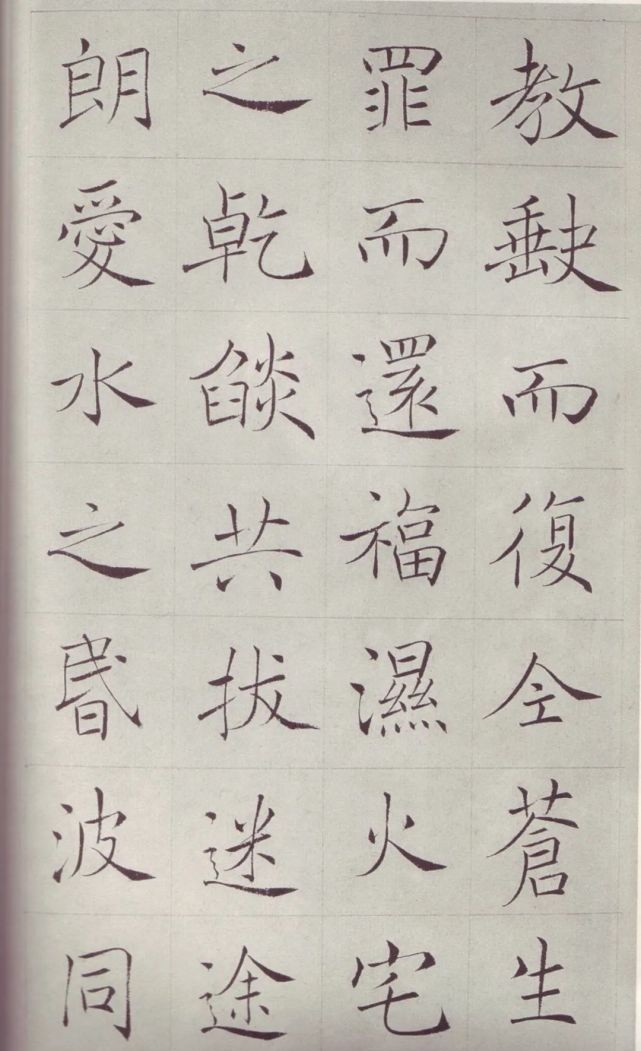 教缺而復全蒼生
罪而還福濕火宅
之乾燄共拔迷途
朗愛水之昬波同